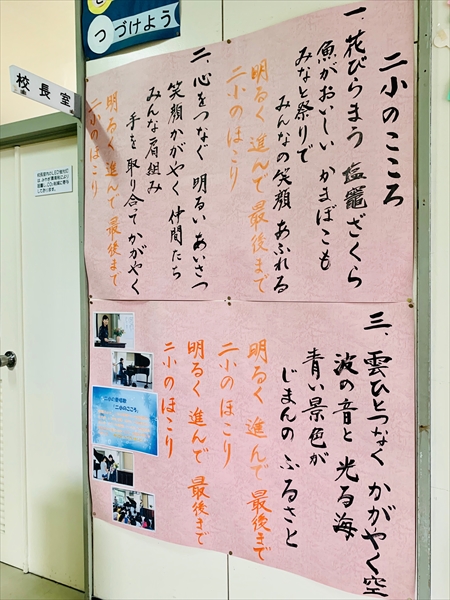 つづけよう
校長室
二小のこころ
一、花びらまう 塩竈ざくら
魚がおいしい かまぼこも
みなと祭りで
みんなの笑顔 あふれる
明るく 進んで 最後まで
二小のほこり
二、心をつなぐ 明るい あいさつ
笑顔かがやく 仲間たち
みんな肩組み
手を取り合て かがやく
明るく 進んで 最後まで
二小のほこり
三、雲ひとつなく かがやく空
波の音と 光る海
青い景色が
じまんの ふるさと
明るく 進んで 最後まで
二小のほこり
明るく 進んで 最後まで
二小のほこり
「二小のこころ」